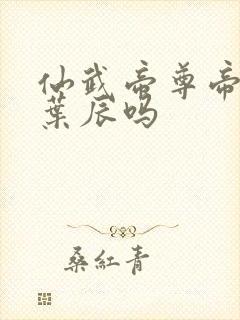 仙武帝尊帝
葉辰吗
桑红青